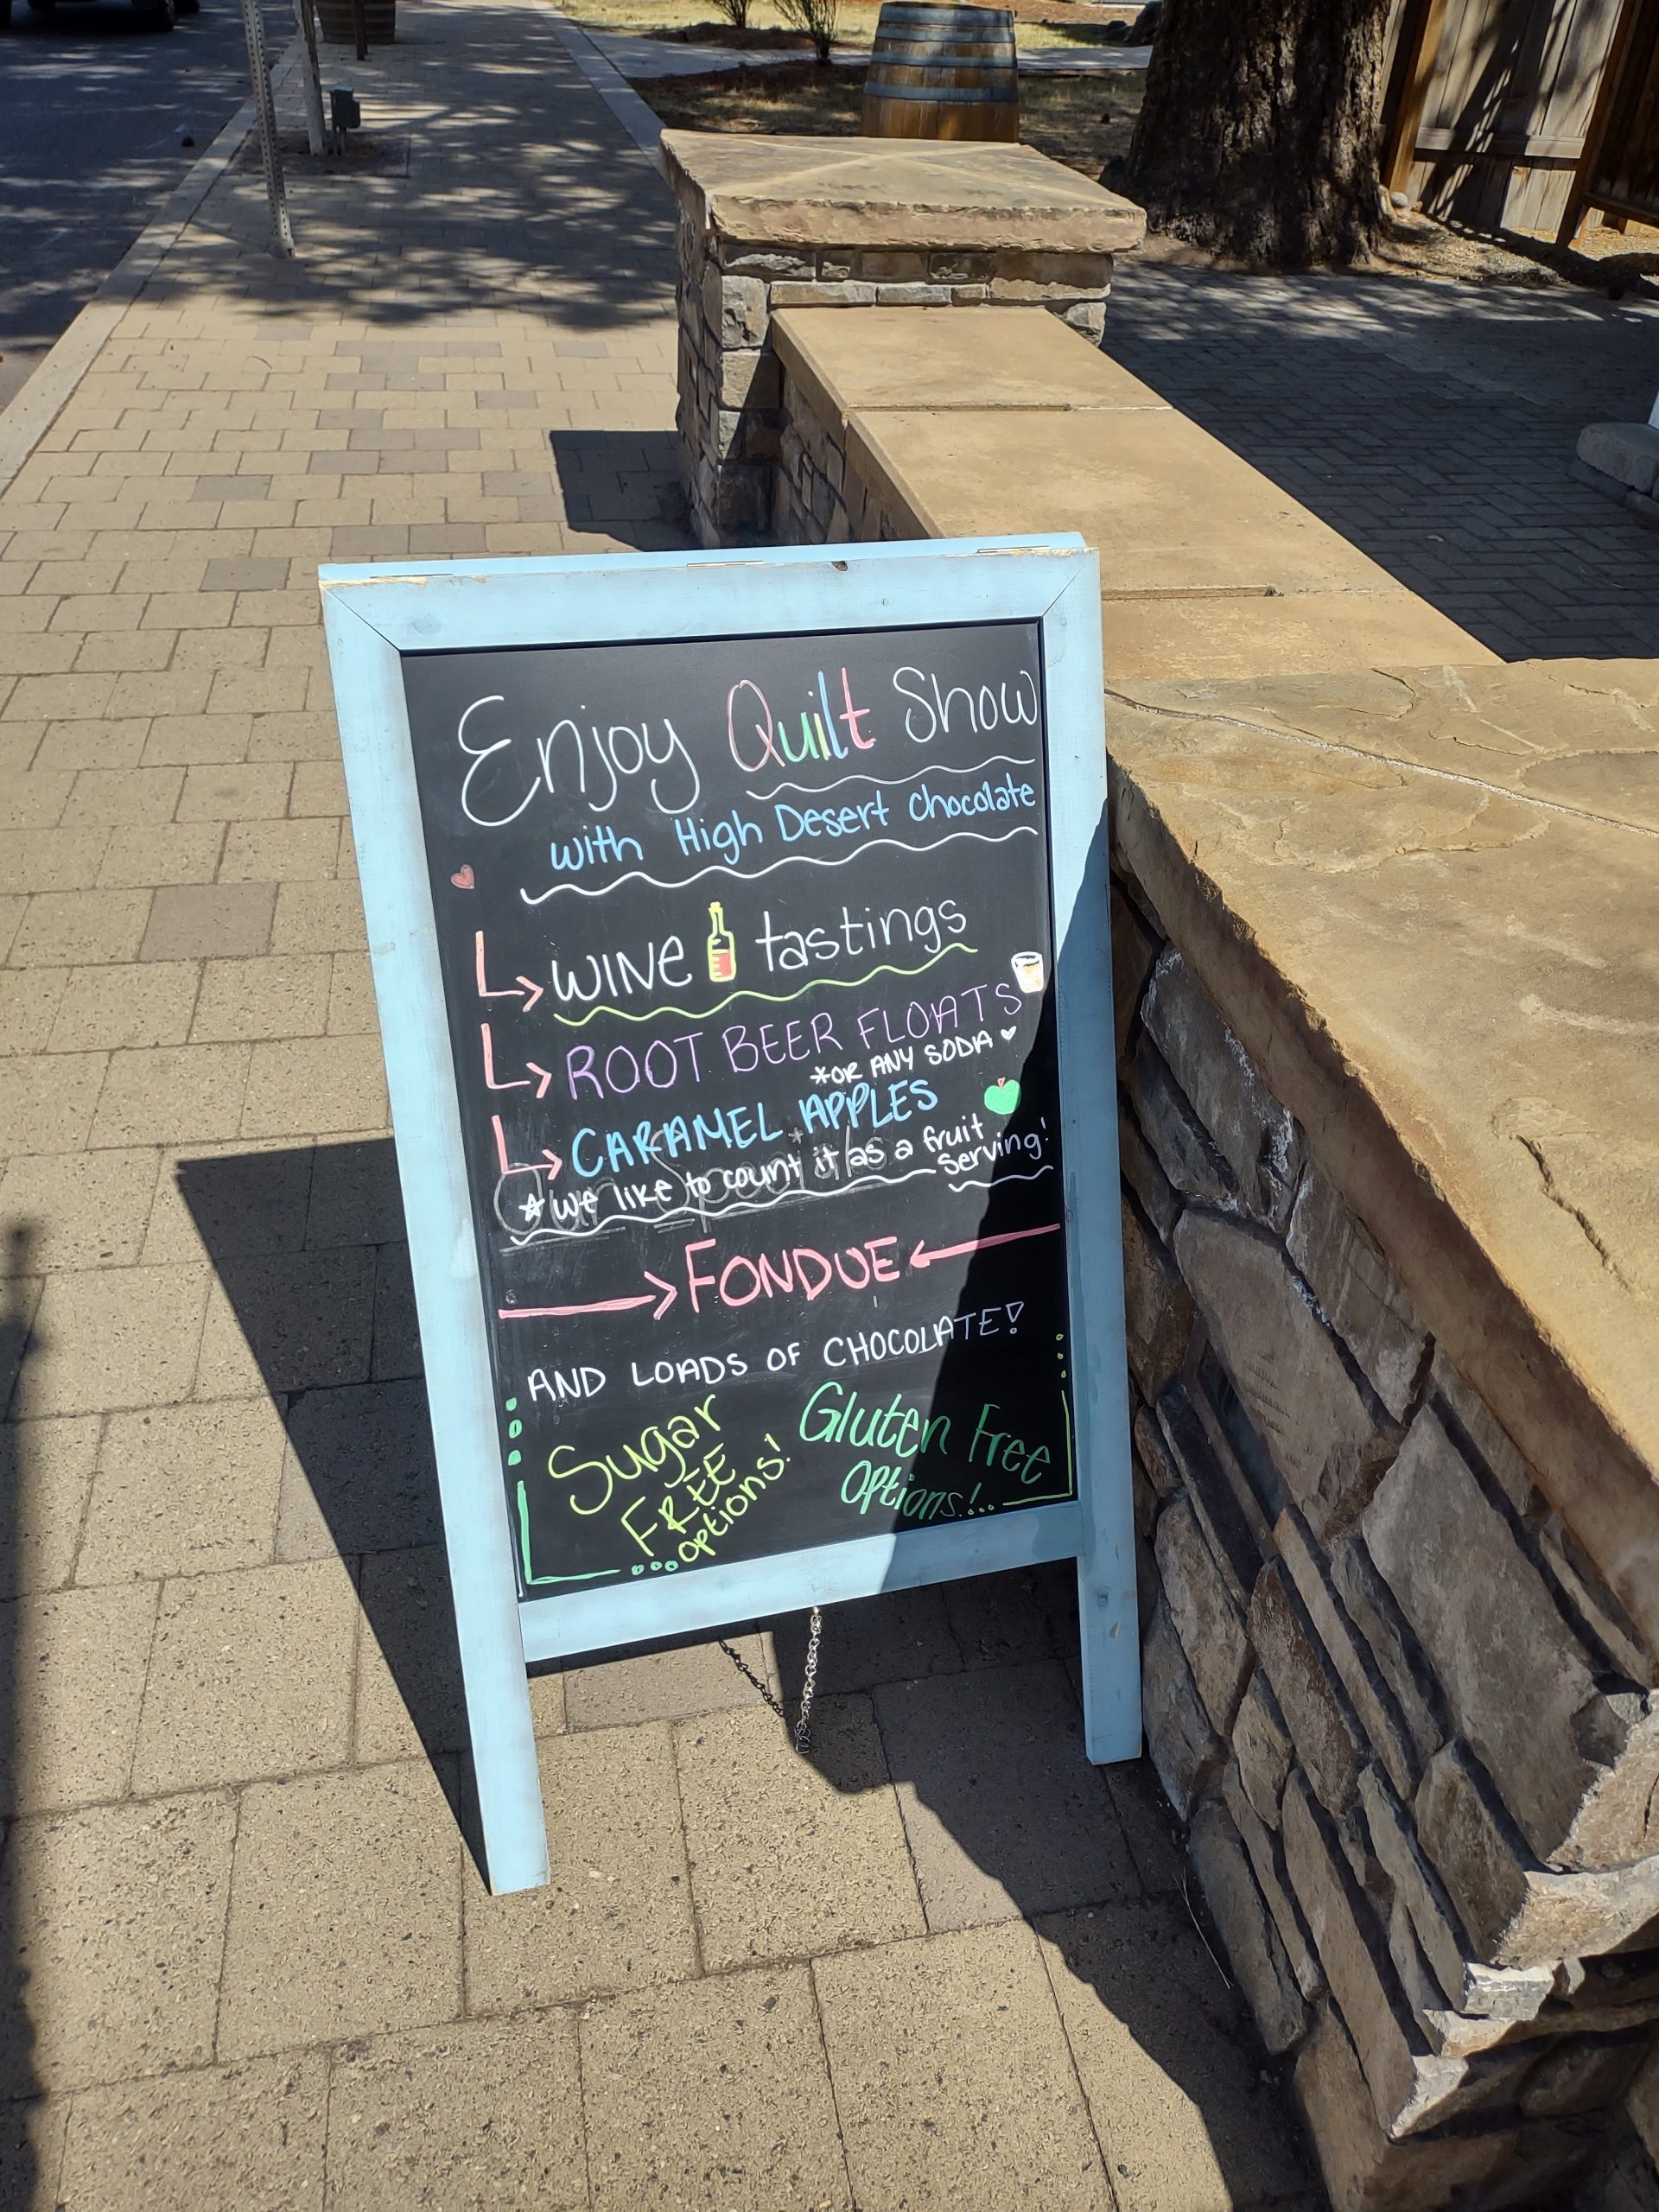 Enjoy Quilt Show
with High Desert Chocolate
WINE tastings
ROOT BEER FLOATS
*OR ANY SODA
CARAMEL APPLES
Our Specials
*we like to count it as a fruit
serving!
FONDUE
AND LOADS OF CHOCOLATE!
Sugar
FREE
options!
Gluten Free
Options!..